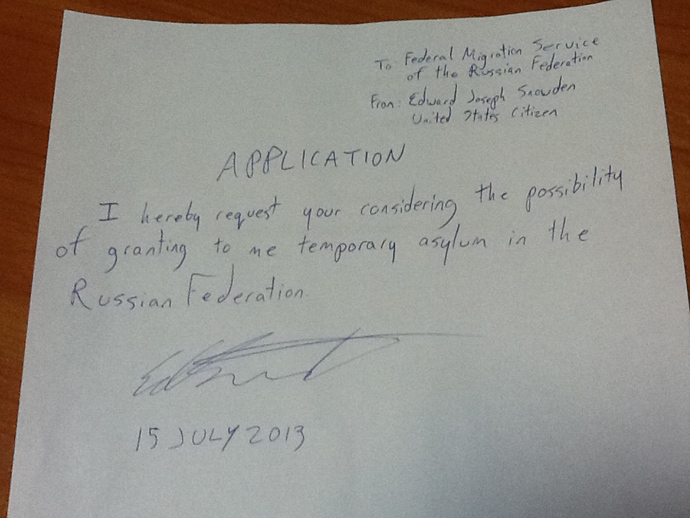 To Federal Migration Service
of the Russian Federation
From: Edward Joseph Snowden
United States Citizen
APPLICATION
I hereby request your considering the possibility
of granting to me temporary asylum in the
Russian Federation.
15 JULY 2013